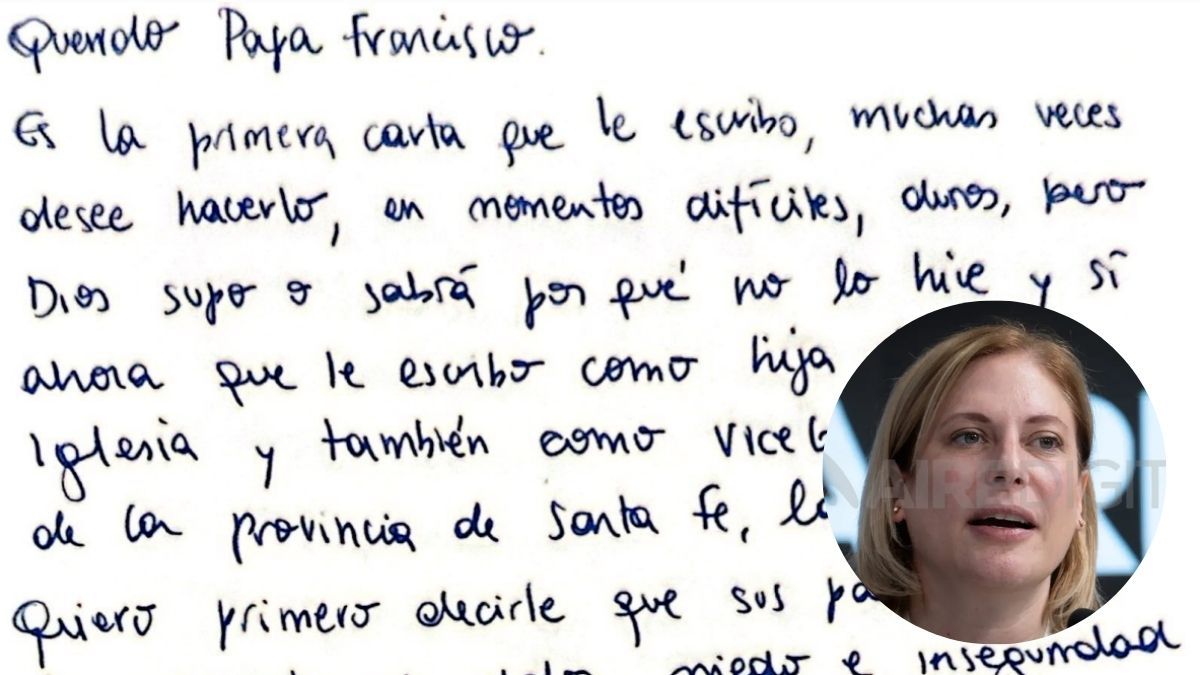 Querido Papa Francisco.
Es la primera carta que le escribo, muchas veces
desee hacerlo, en momentos difíciles, duros, pero
Dios supo o sabrá por qué no lo hice y sí
ahora que le escribo como hija
Iglesia y también como
de la provincia de Santa Fe,
Quiero primero decirle que sus
miedo e inseguridad
AIREDIGIT